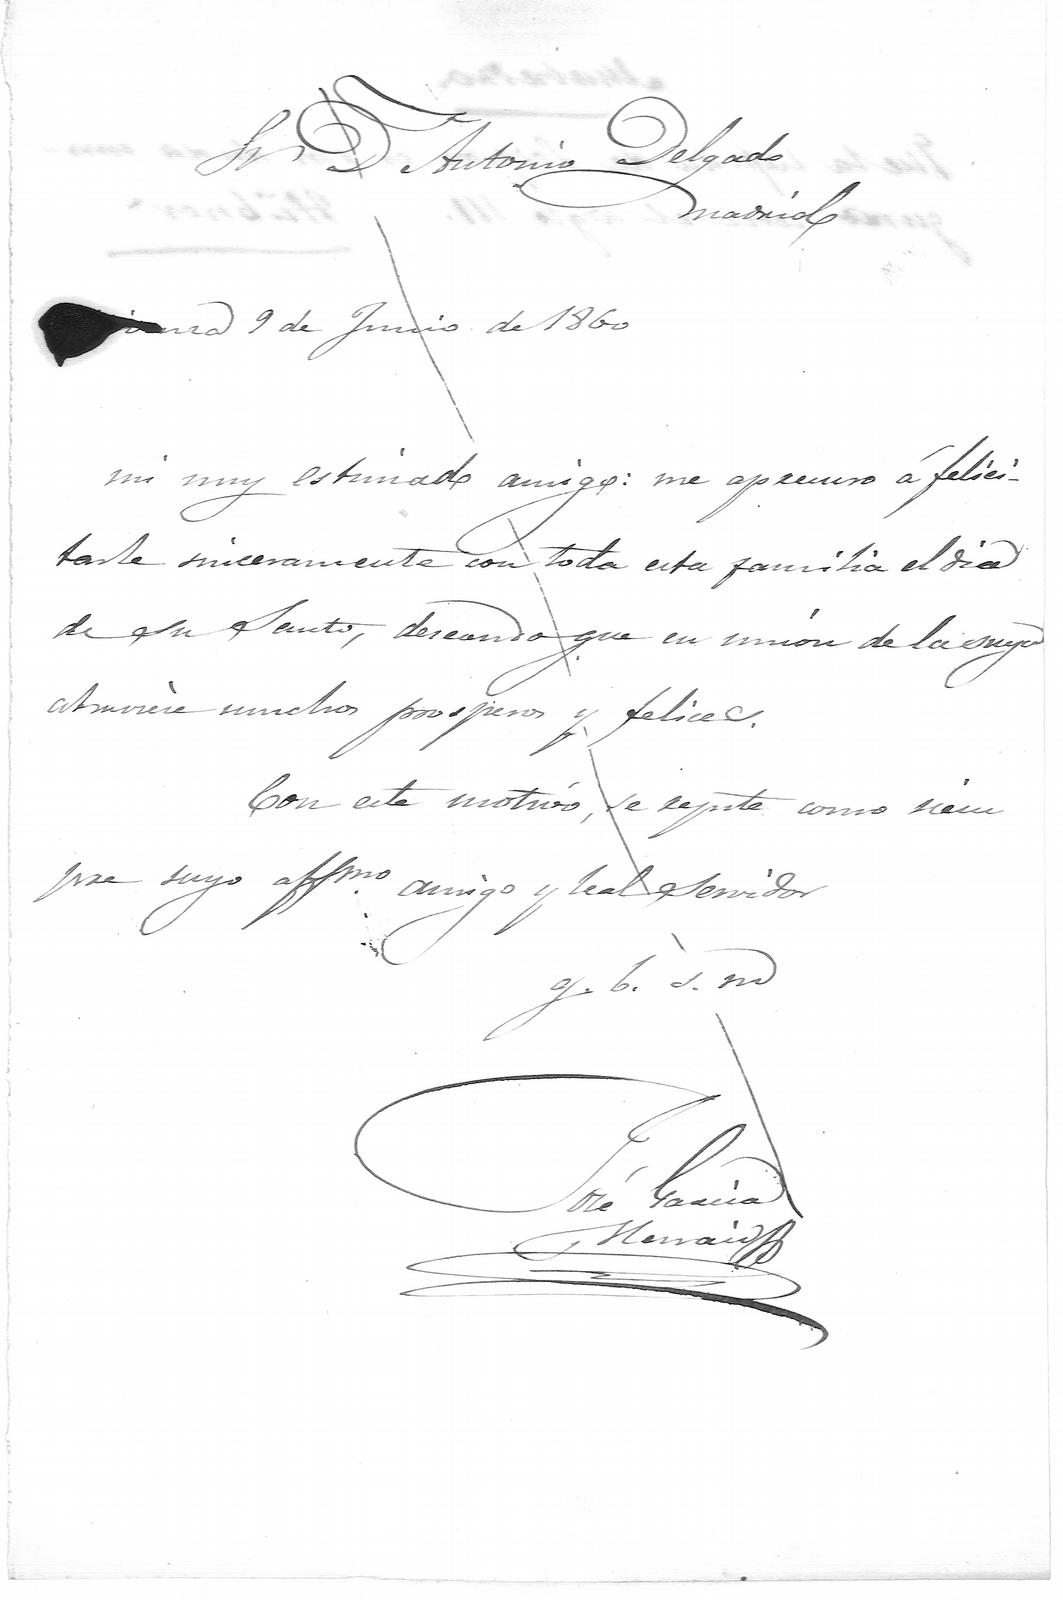 Sr D Antonio Delgado
Madrid
9 de Junio de 1860
mi muy estimado amigo: me apresuro á felici-
tarle sinceramente con toda esta familia el dia
de su Santo, deseando que en unión de la suya
muchos prosperos y felices.
Con este motivo, se repite como siem
pre suyo affmo amigo y leal servidor
q. b. s. m
José García